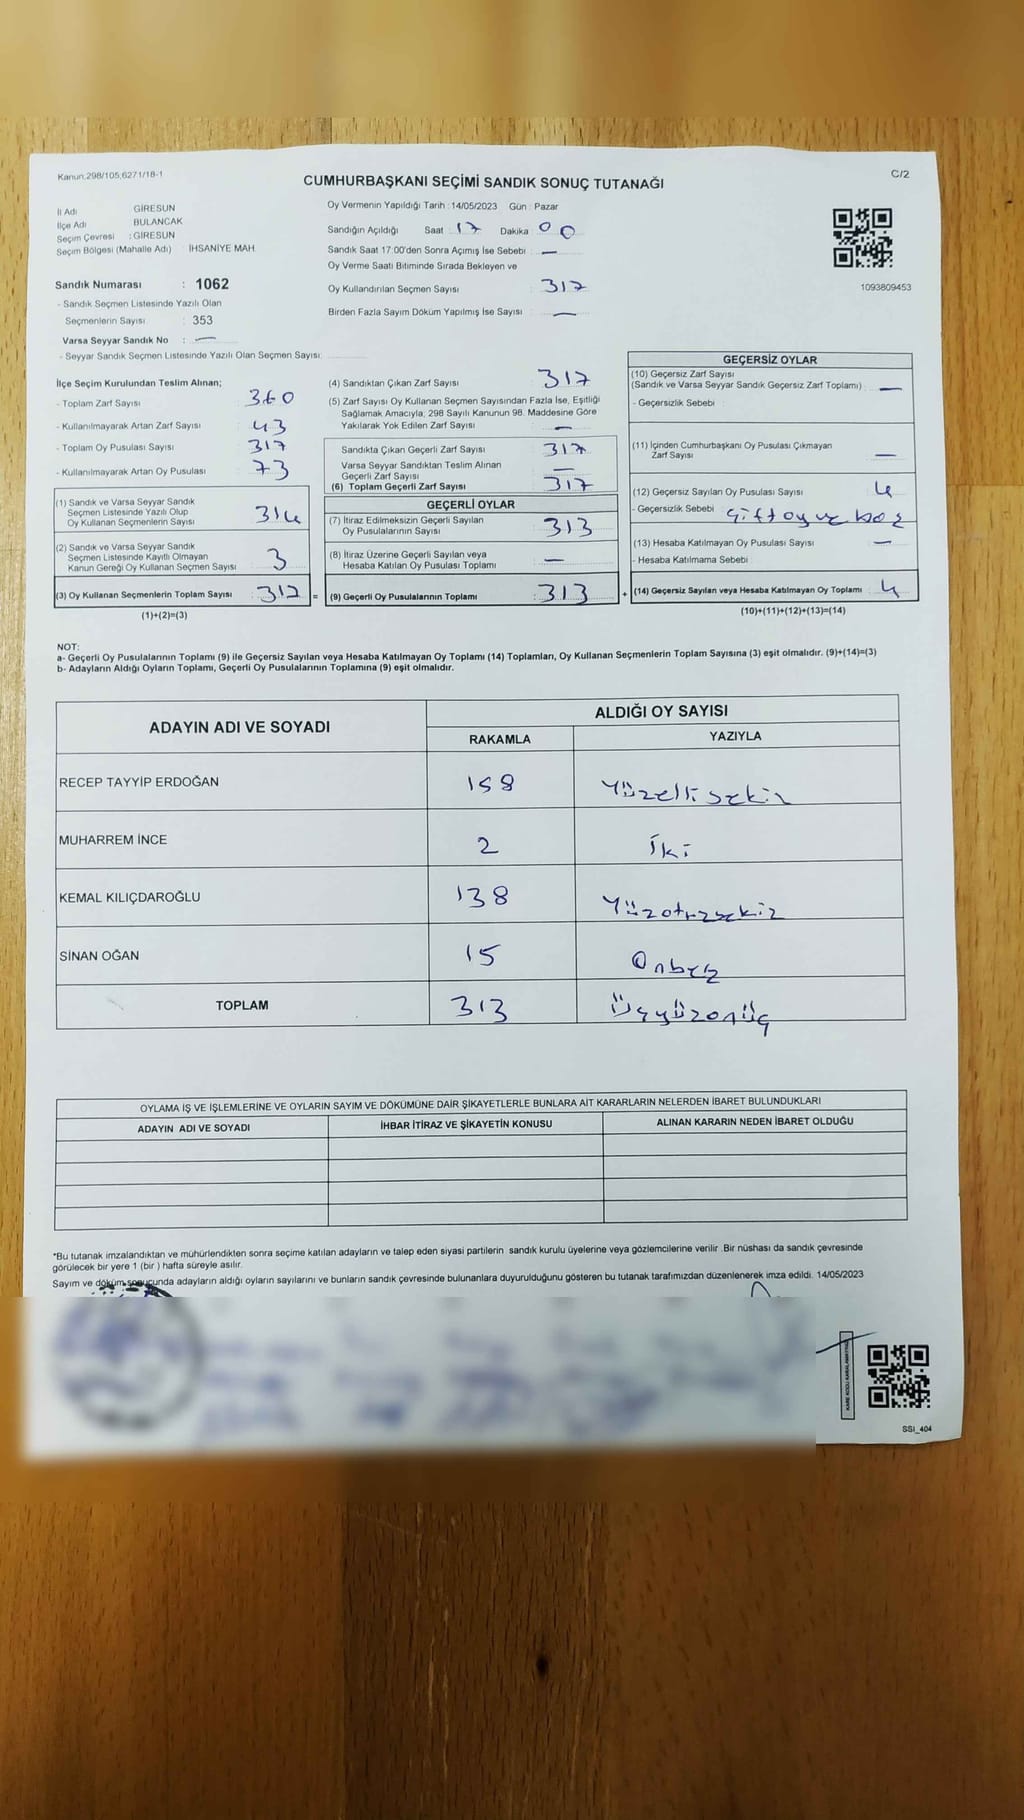 Kanun;298/105;6271/18-1
C/2
CUMHURBAŞKANI SEÇİMİ SANDIK SONUÇ TUTANAĞI
İl Adı GİRESUN
İlçe Adı BULANCAK
Seçim Çevresi : GİRESUN
Seçim Bölgesi (Mahalle Adı) İHSANİYE MAH.
Sandık Numarası : 1062
- Sandık Seçmen Listesinde Yazılı Olan
Seçmenlerin Sayısı : 353
Varsa Seyyar Sandık No : —
- Seyyar Sandık Seçmen Listesinde Yazılı Olan Seçmen Sayısı:
Oy Vermenin Yapıldığı Tarih : 14/05/2023 Gün : Pazar
Sandığın Açıldığı Saat 17 Dakika 00
Sandık Saat 17:00'den Sonra Açımış İse Sebebi : —
Oy Verme Saati Bitiminde Sırada Bekleyen ve
Oy Kullandırılan Seçmen Sayısı 317
Birden Fazla Sayım Döküm Yapılmış İse Sayısı —
1093809453
İlçe Seçim Kurulundan Teslim Alınan;
- Toplam Zarf Sayısı 360
- Kullanılmayarak Artan Zarf Sayısı 43
- Toplam Oy Pusulası Sayısı 317
- Kullanılmayarak Artan Oy Pusulası 73
(1) Sandık ve Varsa Seyyar Sandık
Seçmen Listesinde Yazılı Olup
Oy Kullanan Seçmenlerin Sayısı 314
(2) Sandık ve Varsa Seyyar Sandık
Seçmen Listesinde Kayıtlı Olmayan
Kanun Gereği Oy Kullanan Seçmen Sayısı 3
(3) Oy Kullanan Seçmenlerin Toplam Sayısı : 317 =
(1)+(2)=(3)
(4) Sandıktan Çıkan Zarf Sayısı 317
(5) Zarf Sayısı Oy Kullanan Seçmen Sayısından Fazla İse, Eşitliği
Sağlamak Amacıyla; 298 Sayılı Kanunun 98. Maddesine Göre
Yakılarak Yok Edilen Zarf Sayısı —
Sandıkta Çıkan Geçerli Zarf Sayısı 317
Varsa Seyyar Sandıktan Teslim Alınan
Geçerli Zarf Sayısı —
(6) Toplam Geçerli Zarf Sayısı 317
GEÇERLİ OYLAR
(7) İtiraz Edilmeksizin Geçerli Sayılan
Oy Pusulalarının Sayısı 313
(8) İtiraz Üzerine Geçerli Sayılan veya
Hesaba Katılan Oy Pusulası Toplamı —
(9) Geçerli Oy Pusulalarının Toplamı : 313 +
GEÇERSİZ OYLAR
(10) Geçersiz Zarf Sayısı
(Sandık ve Varsa Seyyar Sandık Geçersiz Zarf Toplamı) : —
- Geçersizlik Sebebi :
(11) İçinden Cumhurbaşkanı Oy Pusulası Çıkmayan
Zarf Sayısı —
(12) Geçersiz Sayılan Oy Pusulası Sayısı 4
- Geçersizlik Sebebi : Çift oy ve boş
(13) Hesaba Katılmayan Oy Pusulası Sayısı —
- Hesaba Katılmama Sebebi
(14) Geçersiz Sayılan veya Hesaba Katılmayan Oy Toplamı : 4
(10)+(11)+(12)+(13)=(14)
NOT:
a- Geçerli Oy Pusulalarının Toplamı (9) ile Geçersiz Sayılan veya Hesaba Katılmayan Oy Toplamı (14) Toplamları, Oy Kullanan Seçmenlerin Toplam Sayısına (3) eşit olmalıdır. (9)+(14)=(3)
b- Adayların Aldığı Oyların Toplamı, Geçerli Oy Pusulalarının Toplamına (9) eşit olmalıdır.
ADAYIN ADI VE SOYADI ALDIĞI OY SAYISI
RAKAMLA YAZIYLA
RECEP TAYYİP ERDOĞAN 158 Yüzellisekiz
MUHARREM İNCE 2 İki
KEMAL KILIÇDAROĞLU 138 Yüzotuzsekiz
SİNAN OĞAN 15 Onbeş
TOPLAM 313 Üçyüzonüç
OYLAMA İŞ VE İŞLEMLERİNE VE OYLARIN SAYIM VE DÖKÜMÜNE DAİR ŞİKAYETLERLE BUNLARA AİT KARARLARIN NELERDEN İBARET BULUNDUKLARI
ADAYIN ADI VE SOYADI İHBAR İTİRAZ VE ŞİKAYETİN KONUSU ALINAN KARARIN NEDEN İBARET OLDUĞU
*Bu tutanak imzalandıktan ve mühürlendikten sonra seçime katılan adayların ve talep eden siyasi partilerin sandık kurulu üyelerine veya gözlemcilerine verilir .Bir nüshası da sandık çevresinde
görülecek bir yere 1 (bir ) hafta süreyle asılır.
Sayım ve döküm sonucunda adayların aldığı oyların sayılarını ve bunların sandık çevresinde bulunanlara duyurulduğunu gösteren bu tutanak tarafımızdan düzenlenerek imza edildi. 14/05/2023
SSI_404